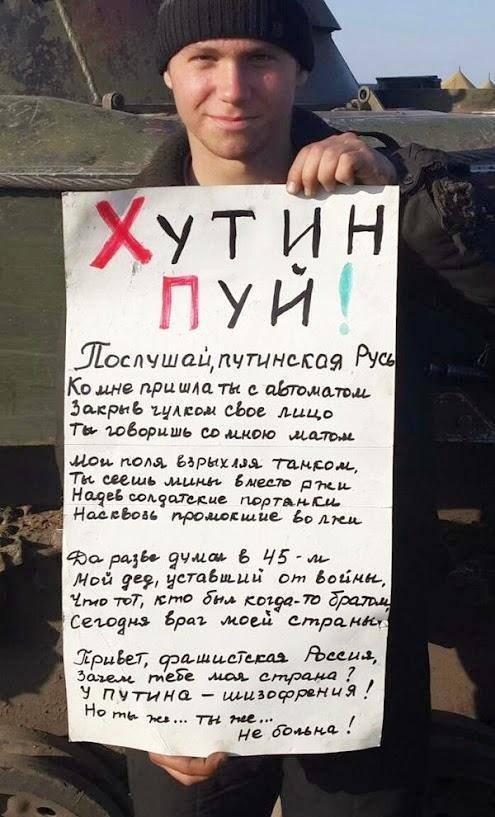 ХУТИН
ПУЙ!
Послушай, путинская Русь
Ко мне пришла ты с автоматом
Закрыв чулком свое лицо
Ты говоришь со мною матом
Мои поля взрыхляя танком,
Ты сеешь мины вместо ржи
Надев солдатские портянки
Насквозь промокшие во лжи
Да разве думал в 45-м
Мой дед, уставший от войны,
Что тот, кто был когда-то братом,
Сегодня враг моей страны.
Привет, фашистская Россия,
Зачем тебе моя страна?
У ПУТИНА – шизофрения!
Но ты же... ты же...
не больна!